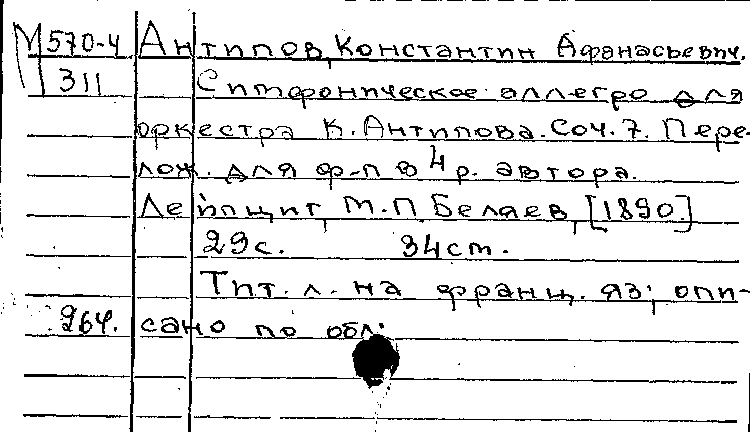 М 570-4 Антипов, Константин Афанасьевич.
311 Симфоническое аллегро для
оркестра К. Антипова. Соч. 7. Пере-
лож. для ф-п в 4 р. автора.
Лейпциг, М.П. Беляев, [1890.]
29 с. 34 cm.
Тит. л. на франц. яз; опи-
264. сано по обл.